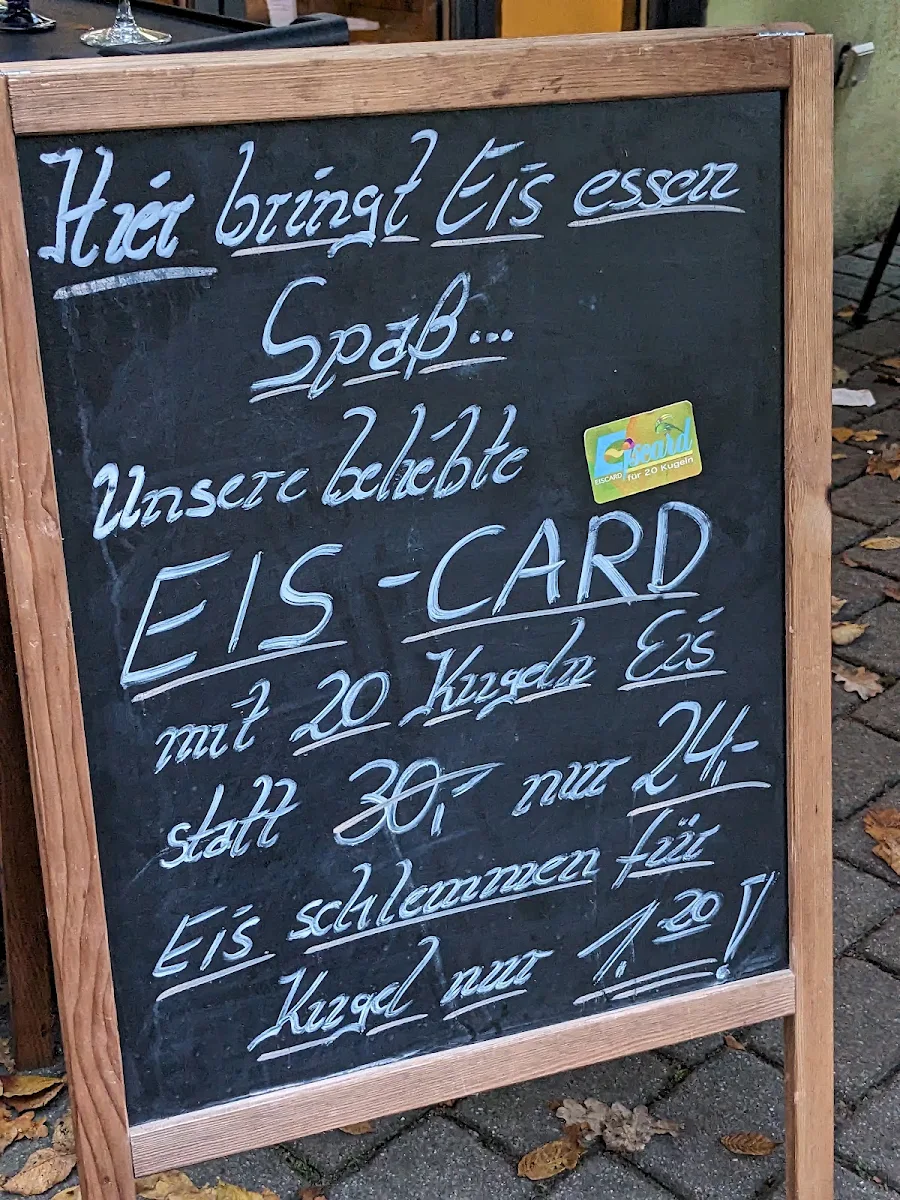 Hier bringt Eis essen
Spaß...
Unsere beliebte
Eiscard
EISCARD für 20 Kugeln
EIS-CARD
mit 20 Kugeln Eis
statt 30,- nur 24,-
Eis schlemmen für
Kugel nur 1.20!